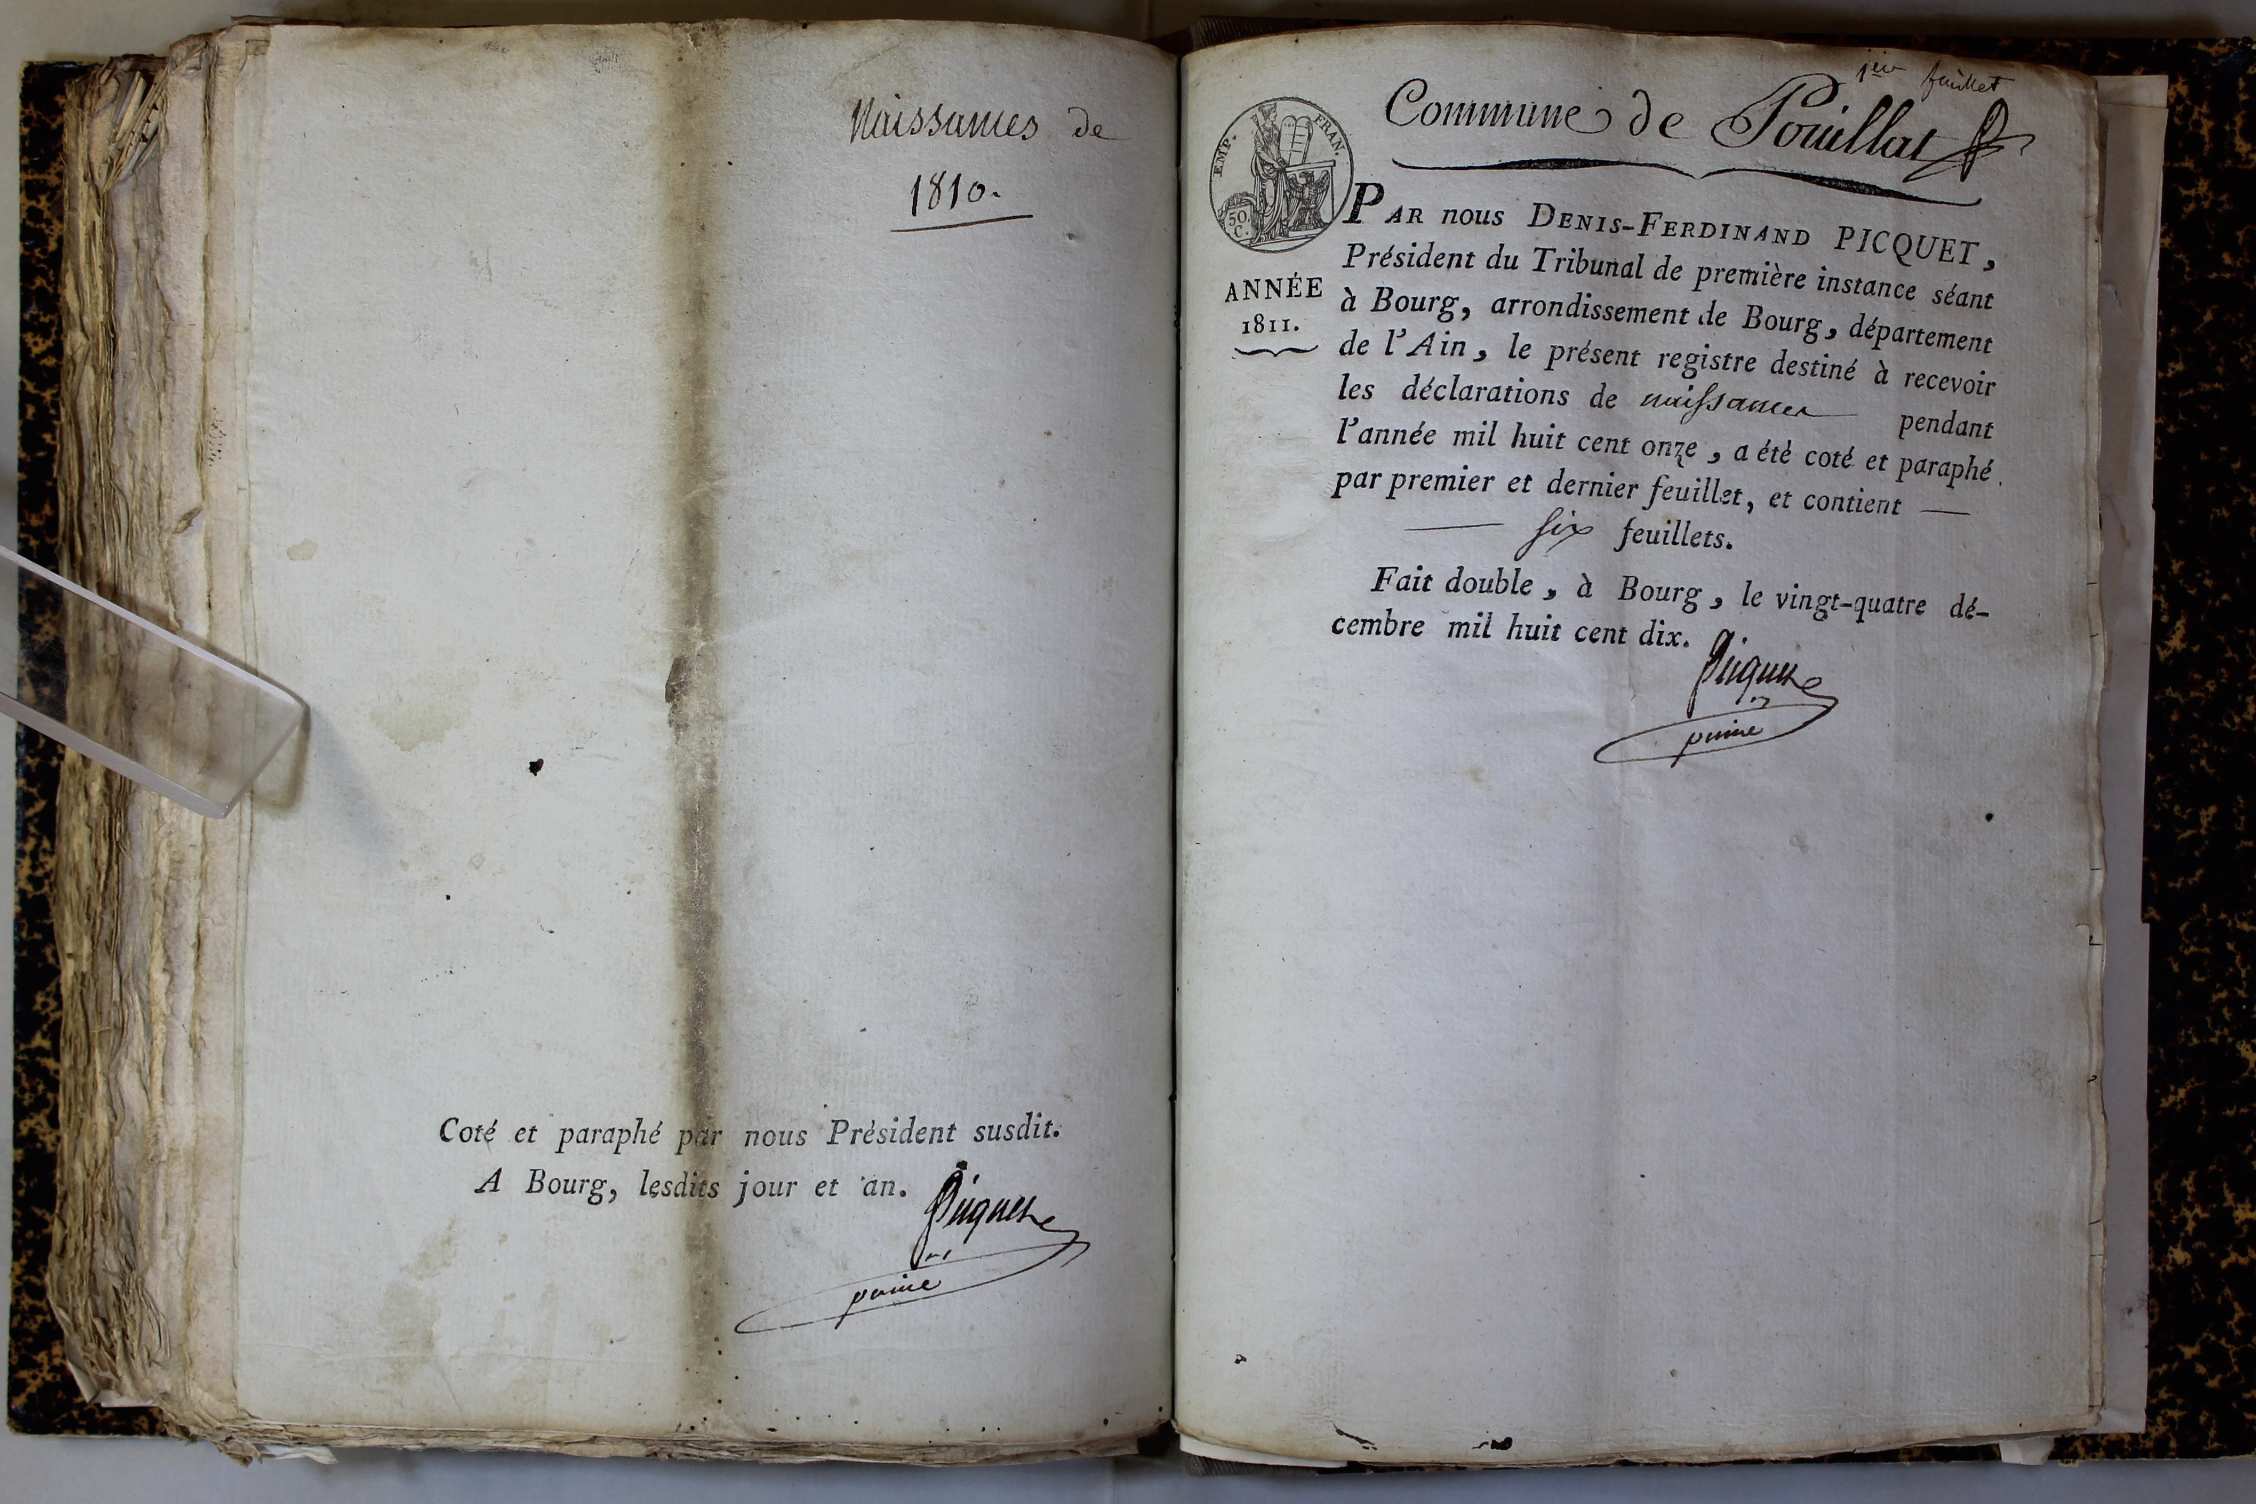 Naissances de
1810.
Coté et paraphé par nous Président susdit.
A Bourg, lesdits jour et an.
Picquet
1er feuillet
Commune de Pouillat
EMP. FRAN.
50.
C.
ANNÉE
1811.
PAR nous DENIS-FERDINAND PICQUET,
Président du Tribunal de première instance séant
à Bourg, arrondissement de Bourg, département
de l'Ain, le présent registre destiné à recevoir
les déclarations de naissances pendant
l'année mil huit cent onze, a été coté et paraphé
par premier et dernier feuillet, et contient —
— six feuillets.
Fait double, à Bourg, le vingt-quatre dé-
cembre mil huit cent dix.
Picquet